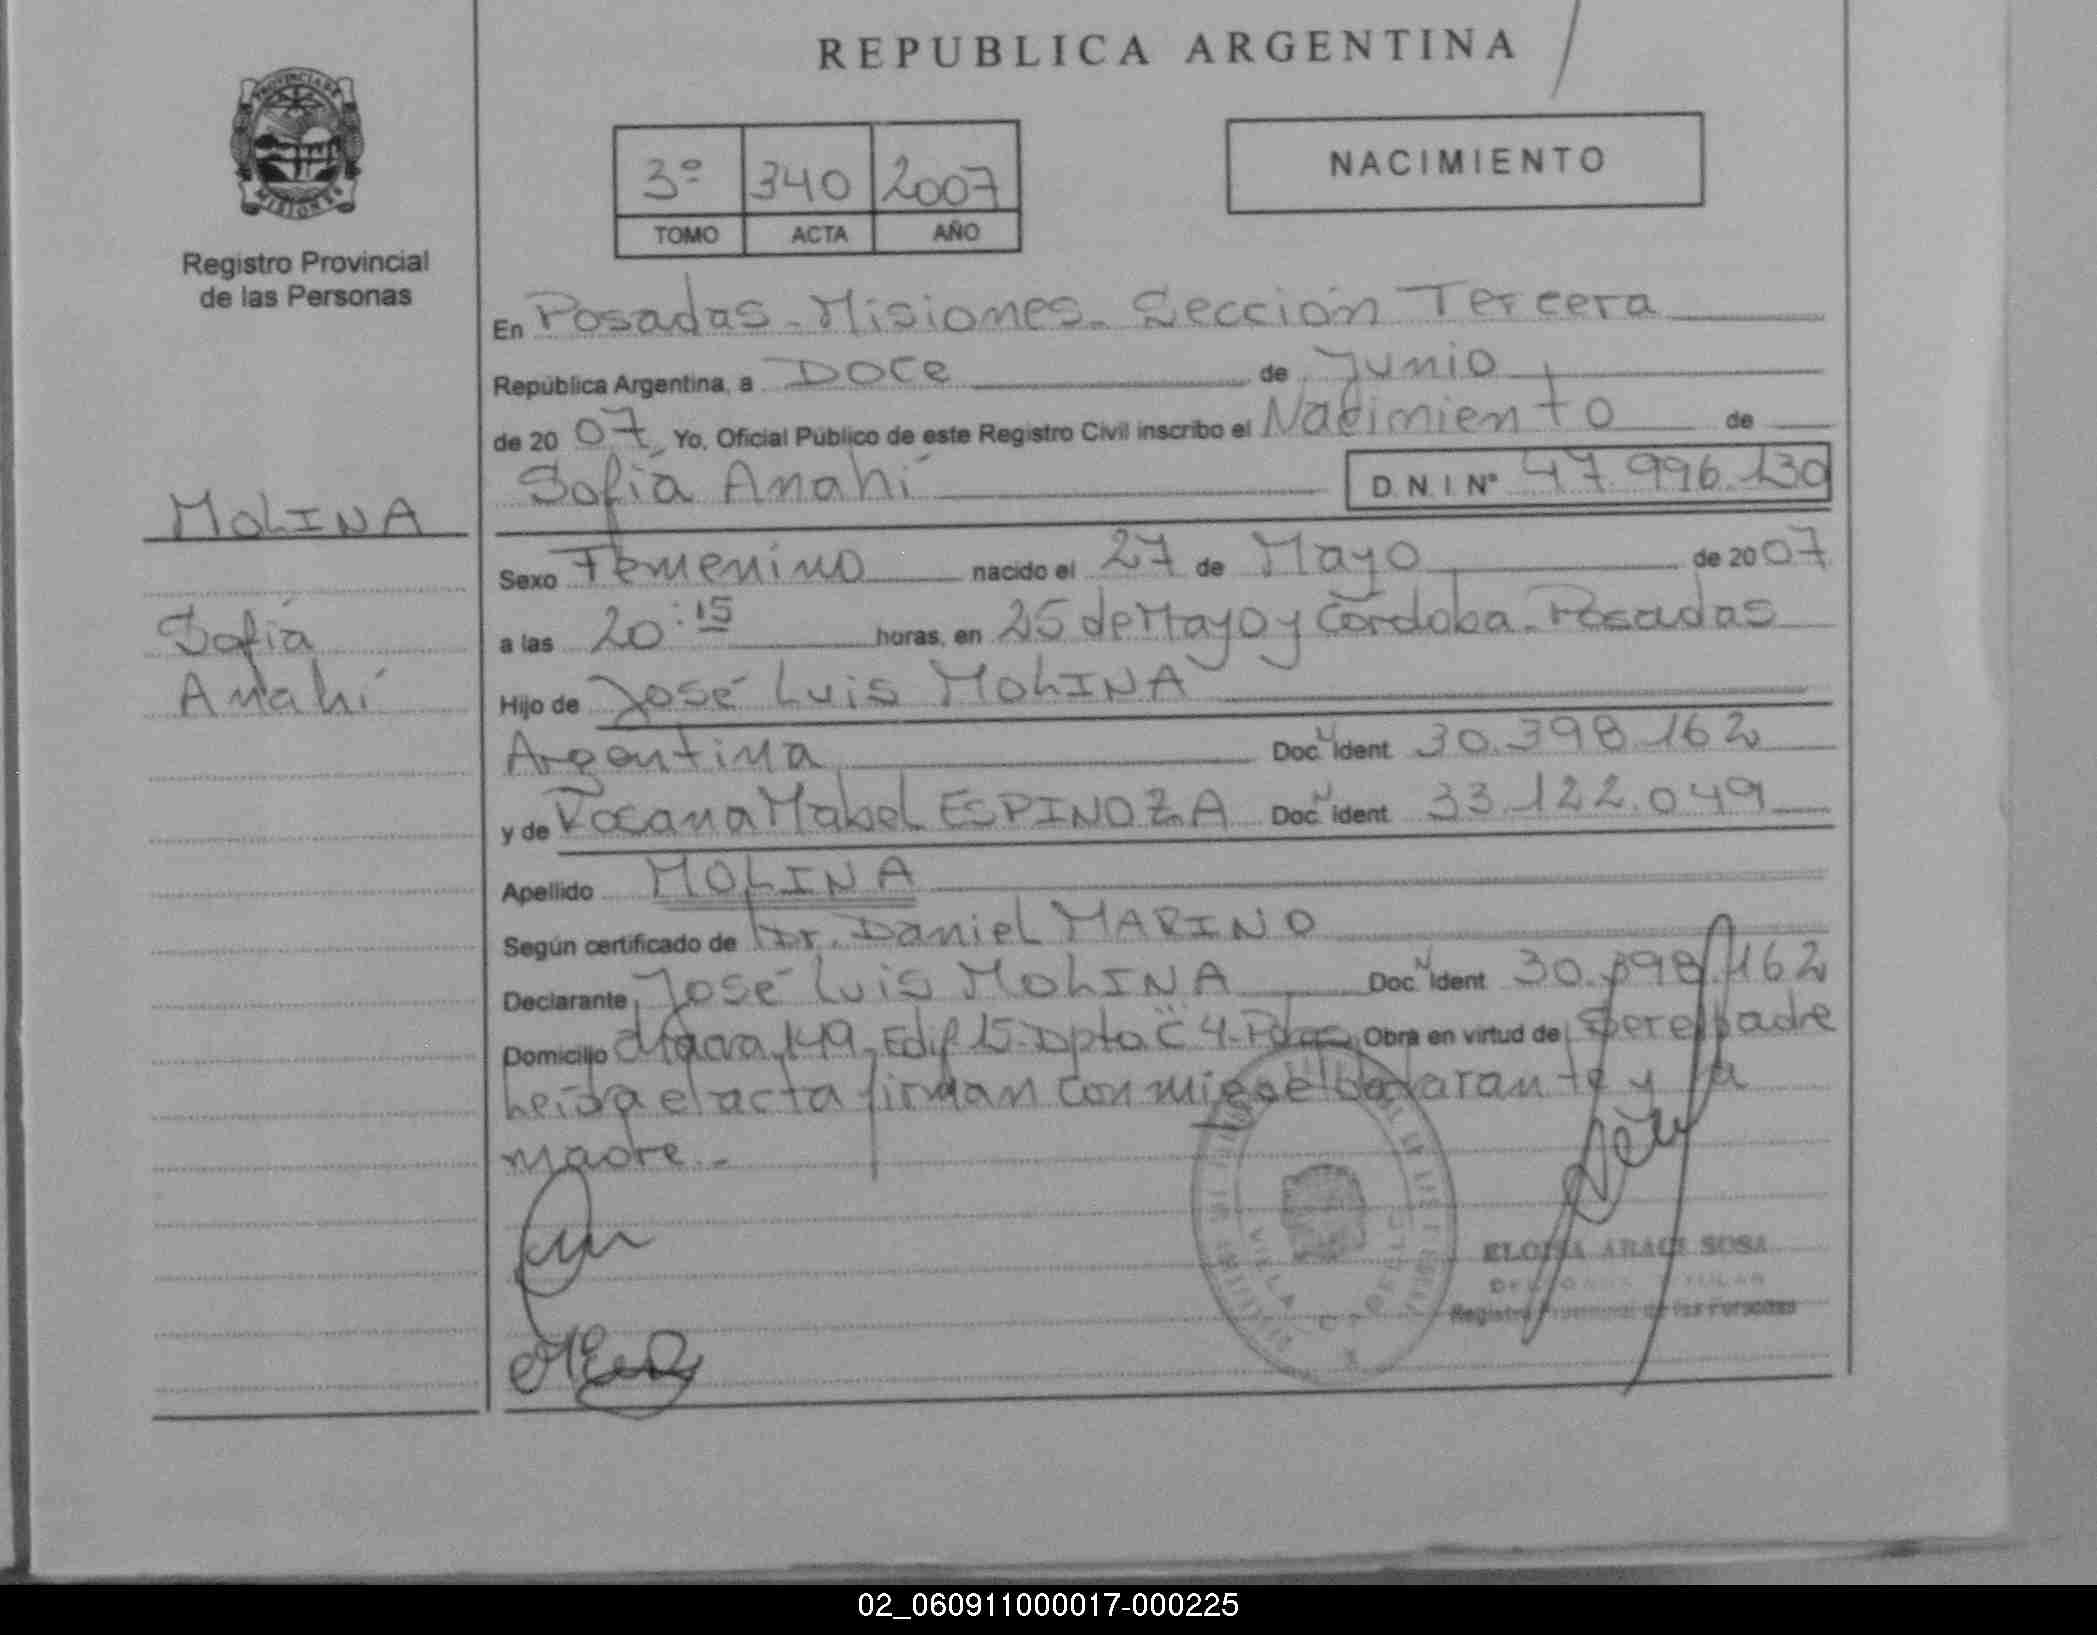 REPUBLICA ARGENTINA
PROVINCIA DE
MISIONES
Registro Provincial
de las Personas
3º 340 2007
TOMO ACTA AÑO
NACIMIENTO
En Posadas - Misiones - Sección Tercera
República Argentina, a Doce de Junio
de 20 07, Yo, Oficial Público de este Registro Civil inscribo el Nacimiento de
Sofía Anahí D.N.I Nº 47.996.130
MOLINA
Sofía
Anahí
Sexo Femenino nacido el 27 de Mayo de 20 07
a las 20:15 horas, en 25 de Mayo y Córdoba - Posadas
Hijo de José Luis MOLINA
Argentina Doc. N Ident 30.398.162
y de Rosana Mabel ESPINOZA Doc. N Ident 33.122.049
Apellido MOLINA
Según certificado de Dr. Daniel MARINO
Declarante José Luis MOLINA Doc. N Ident 30.398.162
Domicilio 149 - Edif 15 - Dpto "C" 4 - Pdas Obra en virtud de Ser el padre
Leída el acta firman conmigo el Declarante y la
madre.-
VILLA
ELOISA ARACI SOSA
Registro Provincial de las Personas
02_060911000017-000225